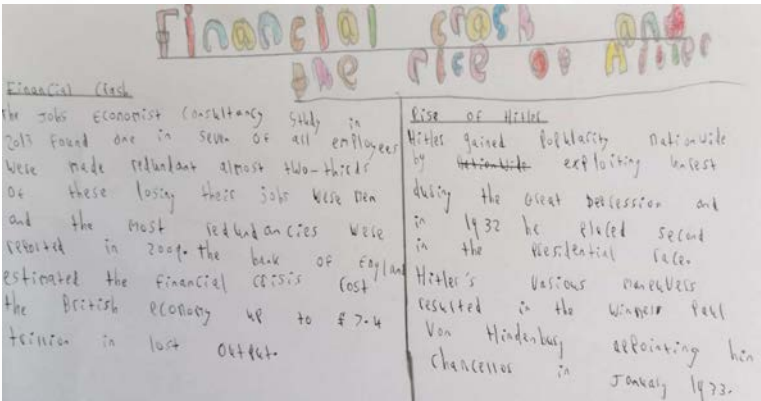 Financial crash and
the rice of Hitler
Financial Crash
The Jobs Economist Consultancy Study in
2013 found one in seven of all employees
were made redundant almost two-thirds
of these losing their jobs were men
and the most redundancies were
reported in 2009. the bank of England
estimated the financial crisis cost
the British economy up to £7.4
trillion in lost output.
Rise of Hitler
Hitler gained Popularity nationwide
by exploiting unrest
during the Great Depression and
in 1932 he placed second
in the Presidential race.
Hitler's various maneuvers
resulted in the winner Paul
Von Hindenburg appointing him
Chancellor in January 1933.